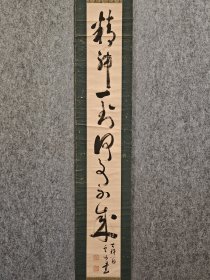 精神一到何事不成